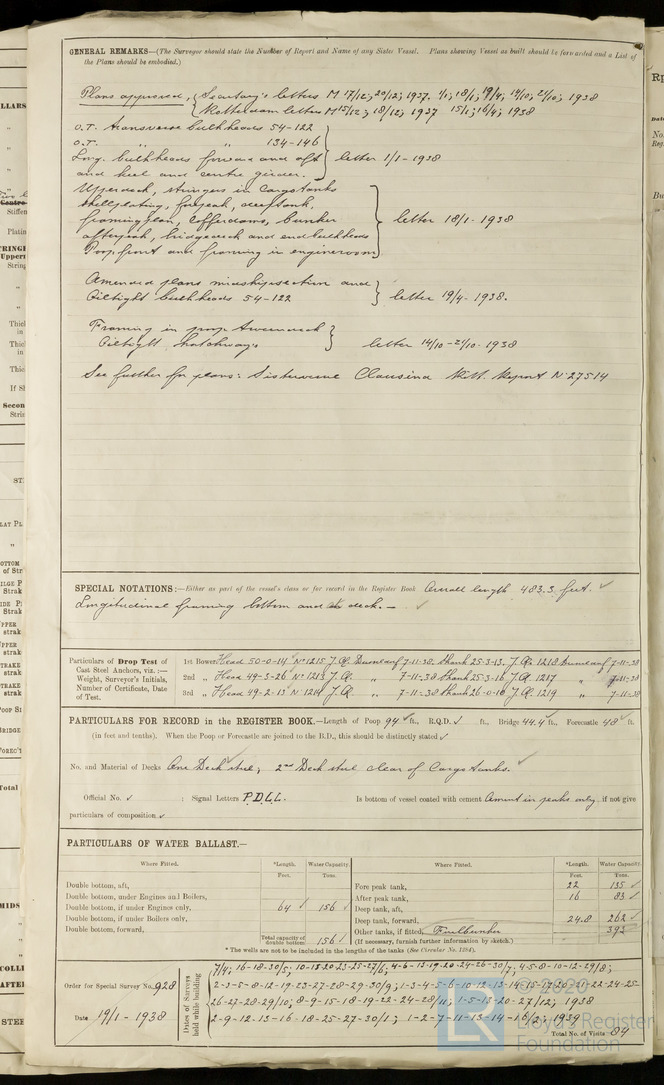 GENERAL REMARKS—(The Surveyor should state the Number of Report and Name of any Sister Vessel. Plans showing Vessel as built should be forwarded and a List of
the Plans should be embodied.)
Plans approved, Secretary's letters M 17/12; 20/12; 1937. 1/1; 18/1; 19/4; 14/10; 21/10; 1938
Rotterdam letters M 15/12; 18/12; 1937 15/1; 16/4; 1938
O.T. transverse bulkheads 54-122
O.T. " " 134-146
Long. bulkheads forward and aft letter 1/1-1938
and keel and centre girder.
Upperdeck, stringers in cargotanks
shellplating, forpeak, deeptank,
framingplan, cofferdams, bunker letter 18/1-1938
afterpeak, bridgedeck and endbulkheads
Poopfront and framing in engineroom
Amended plans midshipsection and
Oiltight bulkheads 54-122 letter 19/4-1938.
Framing in poop tweendeck
Oiltight hatchways letter 14/10-21/10-1938
See further for plans: Sistervessel Clausina Rott. Report No 27514
SPECIAL NOTATIONS:—Either as part of the vessel's class or for record in the Register Book Overall length 483.3 feet.
Longitudinal framing bottom and deck.—
Particulars of Drop Test of
Cast Steel Anchors, viz.:—
Weight, Surveyor's Initials,
Number of Certificate, Date
of Test.
1st Bower Head 50-0-14 No 1215 J.R. 7-11-38. Shank 25-3-13. J.R. 1218 7-11-38
2nd " Head 49-3-26 No 1213 J.R. " 7-11-38 Shank 25-3-16 J.R. 1217 " 7-11-38
3rd " Head 49-2-13 No 1214 J.R. " 7-11-38 Shank 26-0-16 J.R. 1219 " 7-11-38
PARTICULARS FOR RECORD in the REGISTER BOOK.—Length of Poop 94 ft., R.Q.D. ft., Bridge 44.4 ft., Forecastle 48 ft.
(in feet and tenths). When the Poop or Forecastle are joined to the B.D., this should be distinctly stated
No. and Material of Decks One Deck steel; 2nd Deck steel clear of Cargotanks.
Official No. ; Signal Letters P.D.L.L. Is bottom of vessel coated with cement Cement in peaks only, if not give
particulars of composition
PARTICULARS OF WATER BALLAST.—
Where Fitted. *Length. Water Capacity. Where Fitted. *Length. Water Capacity.
Feet. Tons. Feet. Tons.
Double bottom, aft, Fore peak tank, 22 135
Double bottom, under Engines and Boilers, 64 156 After peak tank, 16 83
Double bottom, if under Engines only, Deep tank, aft,
Double bottom, if under Boilers only, Deep tank, forward, 24.8 262
Double bottom, forward, Other tanks, if fitted, Fuelbunker 393
Total capacity of double bottom 156 (If necessary, furnish further information by sketch.)
* The wells are not to be included in the lengths of the tanks (See Circular No. 1284).
Order for Special Survey No. 928
Date 19/1-1938
Dates of Surveys held while building
7/4; 16-18-30/5; 10-18-20-23-25-27/6; 4-6-13-19-20-24-26-30/7; 4-5-8-10-12-29/8;
2-3-5-8-12-19-23-27-28-29-30/9; 1-3-4-5-6-10-12-13-14-15-17-20-22-24-25-
26-27-28-29/10; 8-9-15-18-19-22-24-28/11; 1-5-13-20-27/12; 1938
2-9-12-13-16-18-25-27-30/1; 1-2-7-11-13-14-16/2; 1939
Total No. of Visits 84
© 2020
Lloyd's Register
Foundation
LR